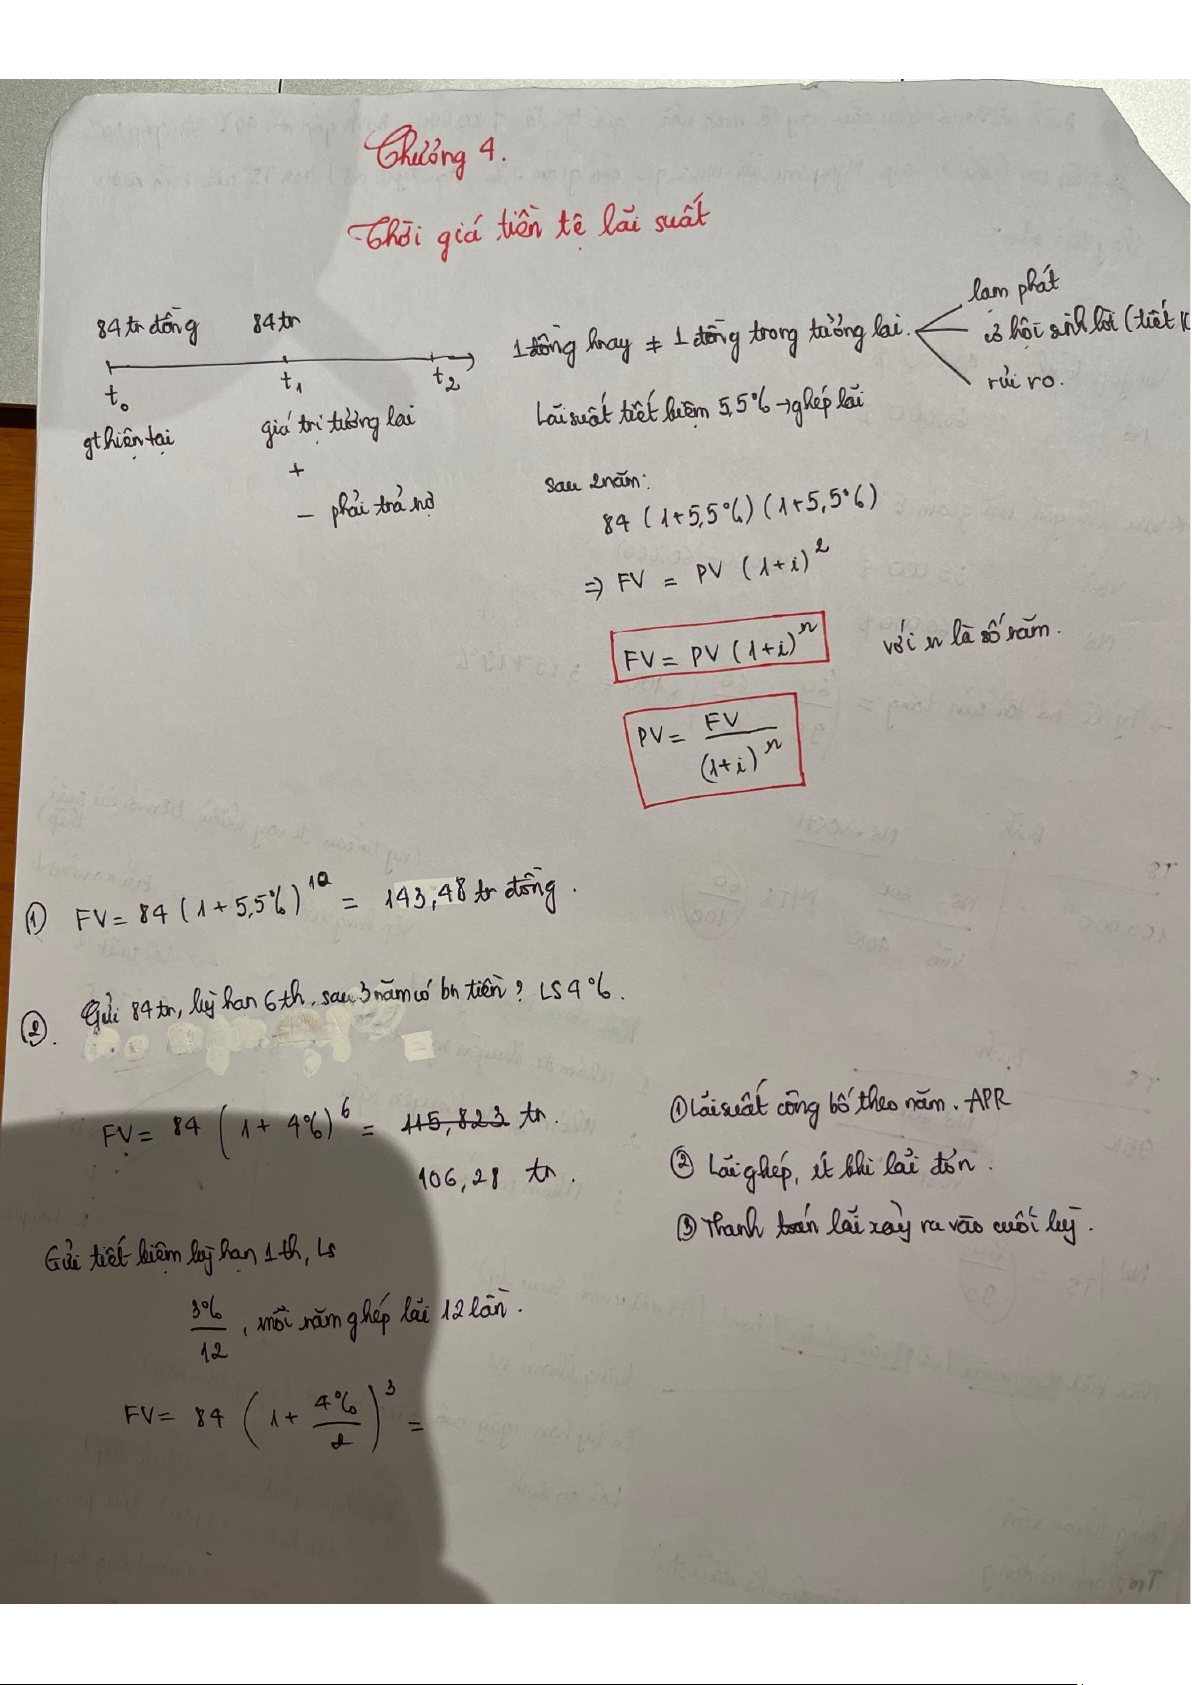 Chương 4.
Thời giá tiền tệ lãi suất
84 tr đồng 84 tr
t₀ t₁ t₂
gt hiện tại giá trị tương lai
+
- phải trả nợ
1 đồng hnay ≠ 1 đồng trong tương lai.
lạm phát
cơ hội sinh lời (tiết k
rủi ro.
Lãi suất tiết kiệm 5,5% → ghép lãi
sau 2 năm:
84 (1+5,5%) (1+5,5%)
⇒ FV = PV (1+i)²
FV = PV (1+i)ⁿ với n là số năm.
PV = FV / (1+i)ⁿ
① FV = 84 (1+5,5%)¹⁰ = 143,48 tr đồng.
②. Gửi 84 tr, kỳ hạn 6 th, sau 3 năm có bn tiền? LS 4%.
FV = 84 (1+4%)⁶ = 115,823 tr.
106,28 tr.
① Lãi suất công bố theo năm. APR
② Lãi ghép, ít khi lãi đơn.
③ Thanh toán lãi xảy ra vào cuối kỳ.
Gửi tiết kiệm kỳ hạn 1 th, Ls
3%/12, mỗi năm ghép lãi 12 lần.
FV = 84 (1 + 4%/2)³ =